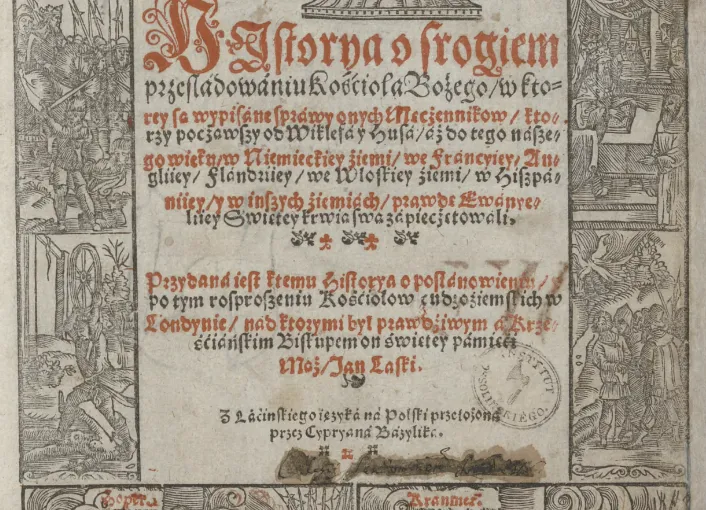 HIstorya o srogiem
przesladowaniu Kośćiołá Bożego/ w kto-
rey są wypisáne spráwy onych Męczennikow/ kto-
rzy począwszy od Wiklefá y Husá/ áż do tego násze-
go wieku/ w Niemieckiey źiemi/ we Fráncyiey/ An-
gliiey/ Flándriiey/ we Włoskiey źiemi/ w Hiszpá-
niiey/ y w inszych źiemiách/ prawdę Ewányе-
liiey Swiętey krwią swą zápieczętowáli.
Przydána iest k temu Historya o postánowieniu/
po tym rosproszeniu Kośćiołow cudzoźiemskich w
Londynie/ nád ktorymi był prawdźiwym á Krze-
śćiáńskim Biskupem on świętey pámięći
Mąż/ Jan Laski.
INSTITUT
OSSOLIŃSKIEGO
Z Láćińskiego ięzyká ná Polski przełożona
przez Cypryaná Bázyliká.
Hoper.
Kranmer.